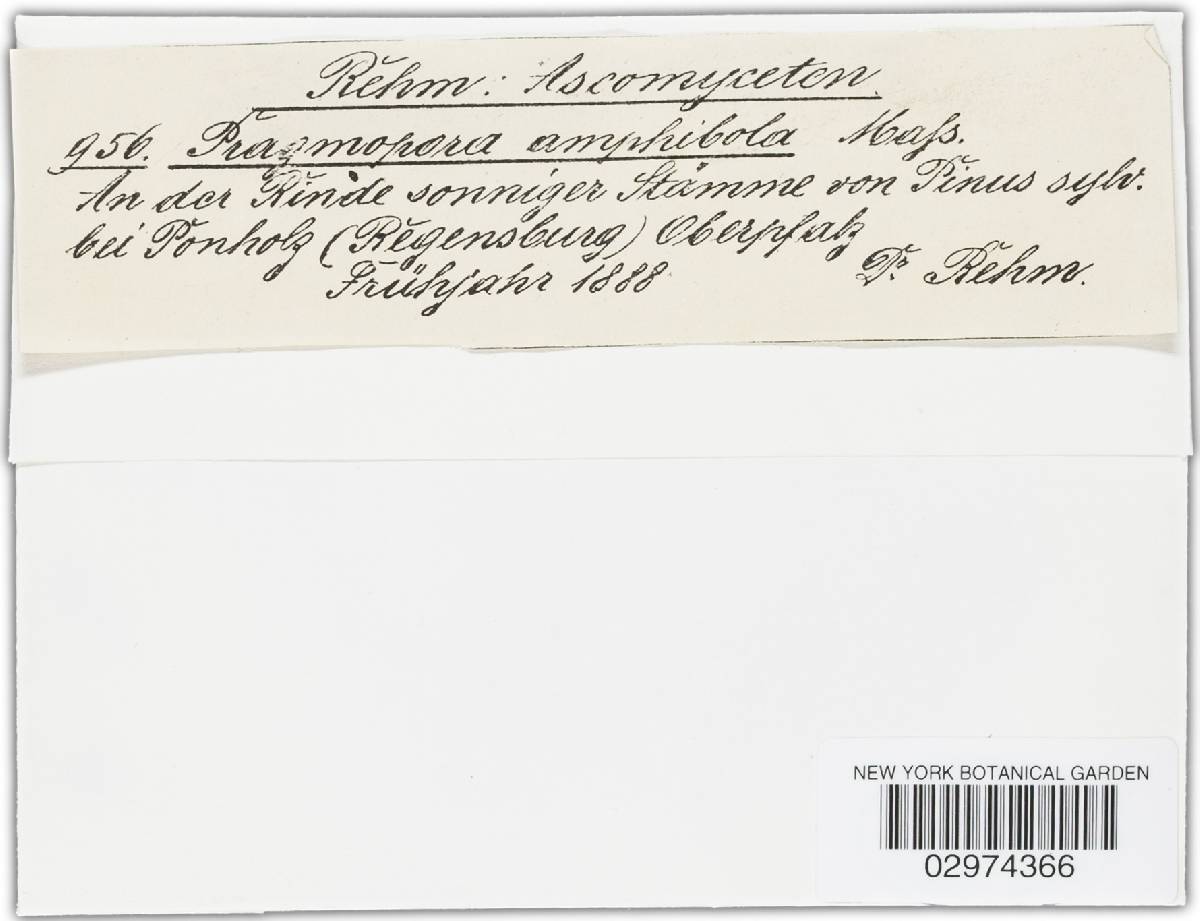 Rehm: Ascomyceten.
956. Pragmopora amphibola Maſs.
An der Rinde sonniger Stämme von Pinus sylv.
bei Ponholz (Regensburg) Oberpfalz
Frühjahr 1888
Dr. Rehm.
NEW YORK BOTANICAL GARDEN
02974366